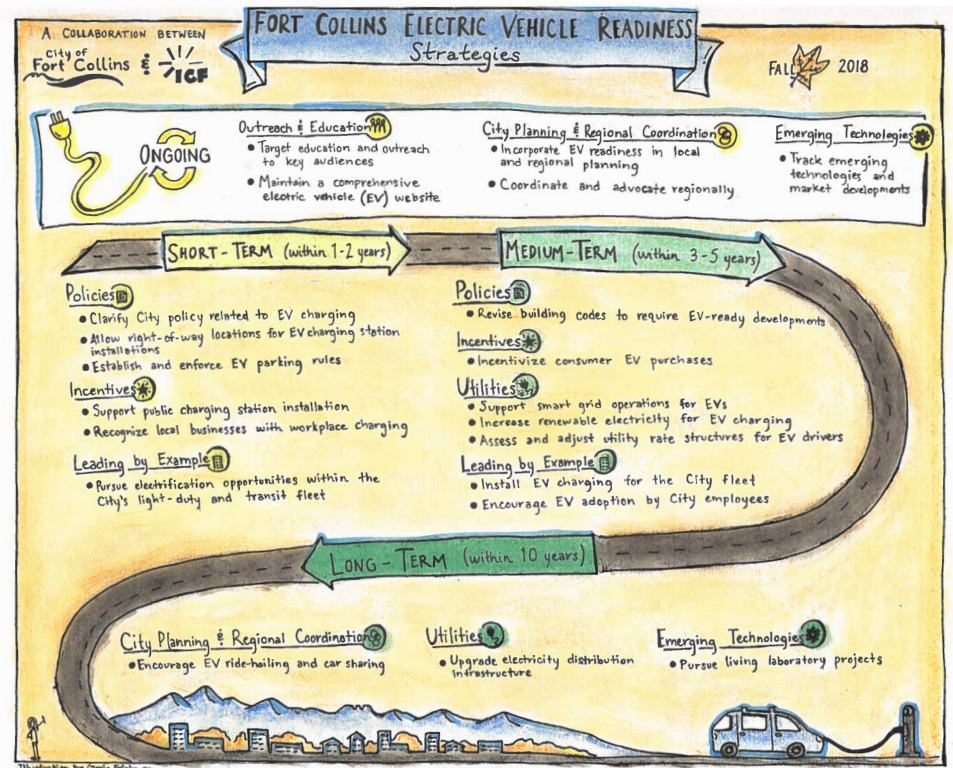 FORT COLLINS ELECTRIC VEHICLE READINESS
Strategies
A COLLABORATION BETWEEN
City of
Fort Collins
&
ICF
FALL 2018
ONGOING
Outreach & Education
• Target education and outreach
to key audiences
• Maintain a comprehensive
electric vehicle (EV) website
City Planning & Regional Coordination
• Incorporate EV readiness in local
and regional planning
• Coordinate and advocate regionally
Emerging Technologies
• Track emerging
technologies and
market developments
SHORT-TERM (within 1-2 years)
MEDIUM-TERM (within 3-5 years)
Policies
• Clarify City policy related to EV charging
• Allow right-of-way locations for EV charging station
installations
• Establish and enforce EV parking rules
Incentives
• Support public charging station installation
• Recognize local businesses with workplace charging
Leading by Example
• Pursue electrification opportunities within the
City's light-duty and transit fleet
Policies
• Revise building codes to require EV-ready developments
Incentives
• Incentivize consumer EV purchases
Utilities
• Support smart grid operations for EVs
• Increase renewable electricity for EV charging
• Assess and adjust utility rate structures for EV drivers
Leading by Example
• Install EV charging for the City fleet
• Encourage EV adoption by City employees
LONG-TERM (within 10 years)
City Planning & Regional Coordination
• Encourage EV ride-hailing and car sharing
Utilities
• Upgrade electricity distribution
infrastructure
Emerging Technologies
• Pursue living laboratory projects
Illustration by